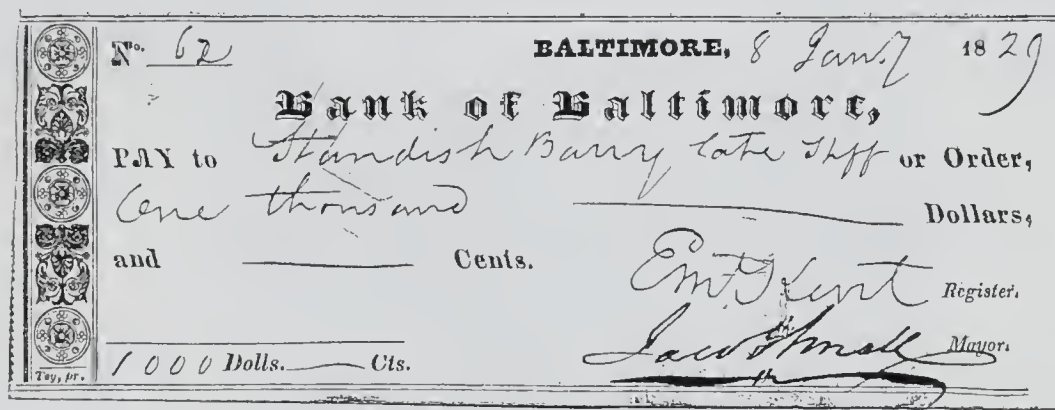 No. 62 BALTIMORE, 8 Jany 1829
Bank of Baltimore,
PAY to Standish Barry late Shff or Order,
One thousand Dollars,
and Cents.
Eml Kent Register.
Jacob Small Mayor.
1000 Dolls. Cts.
Toy, pr.